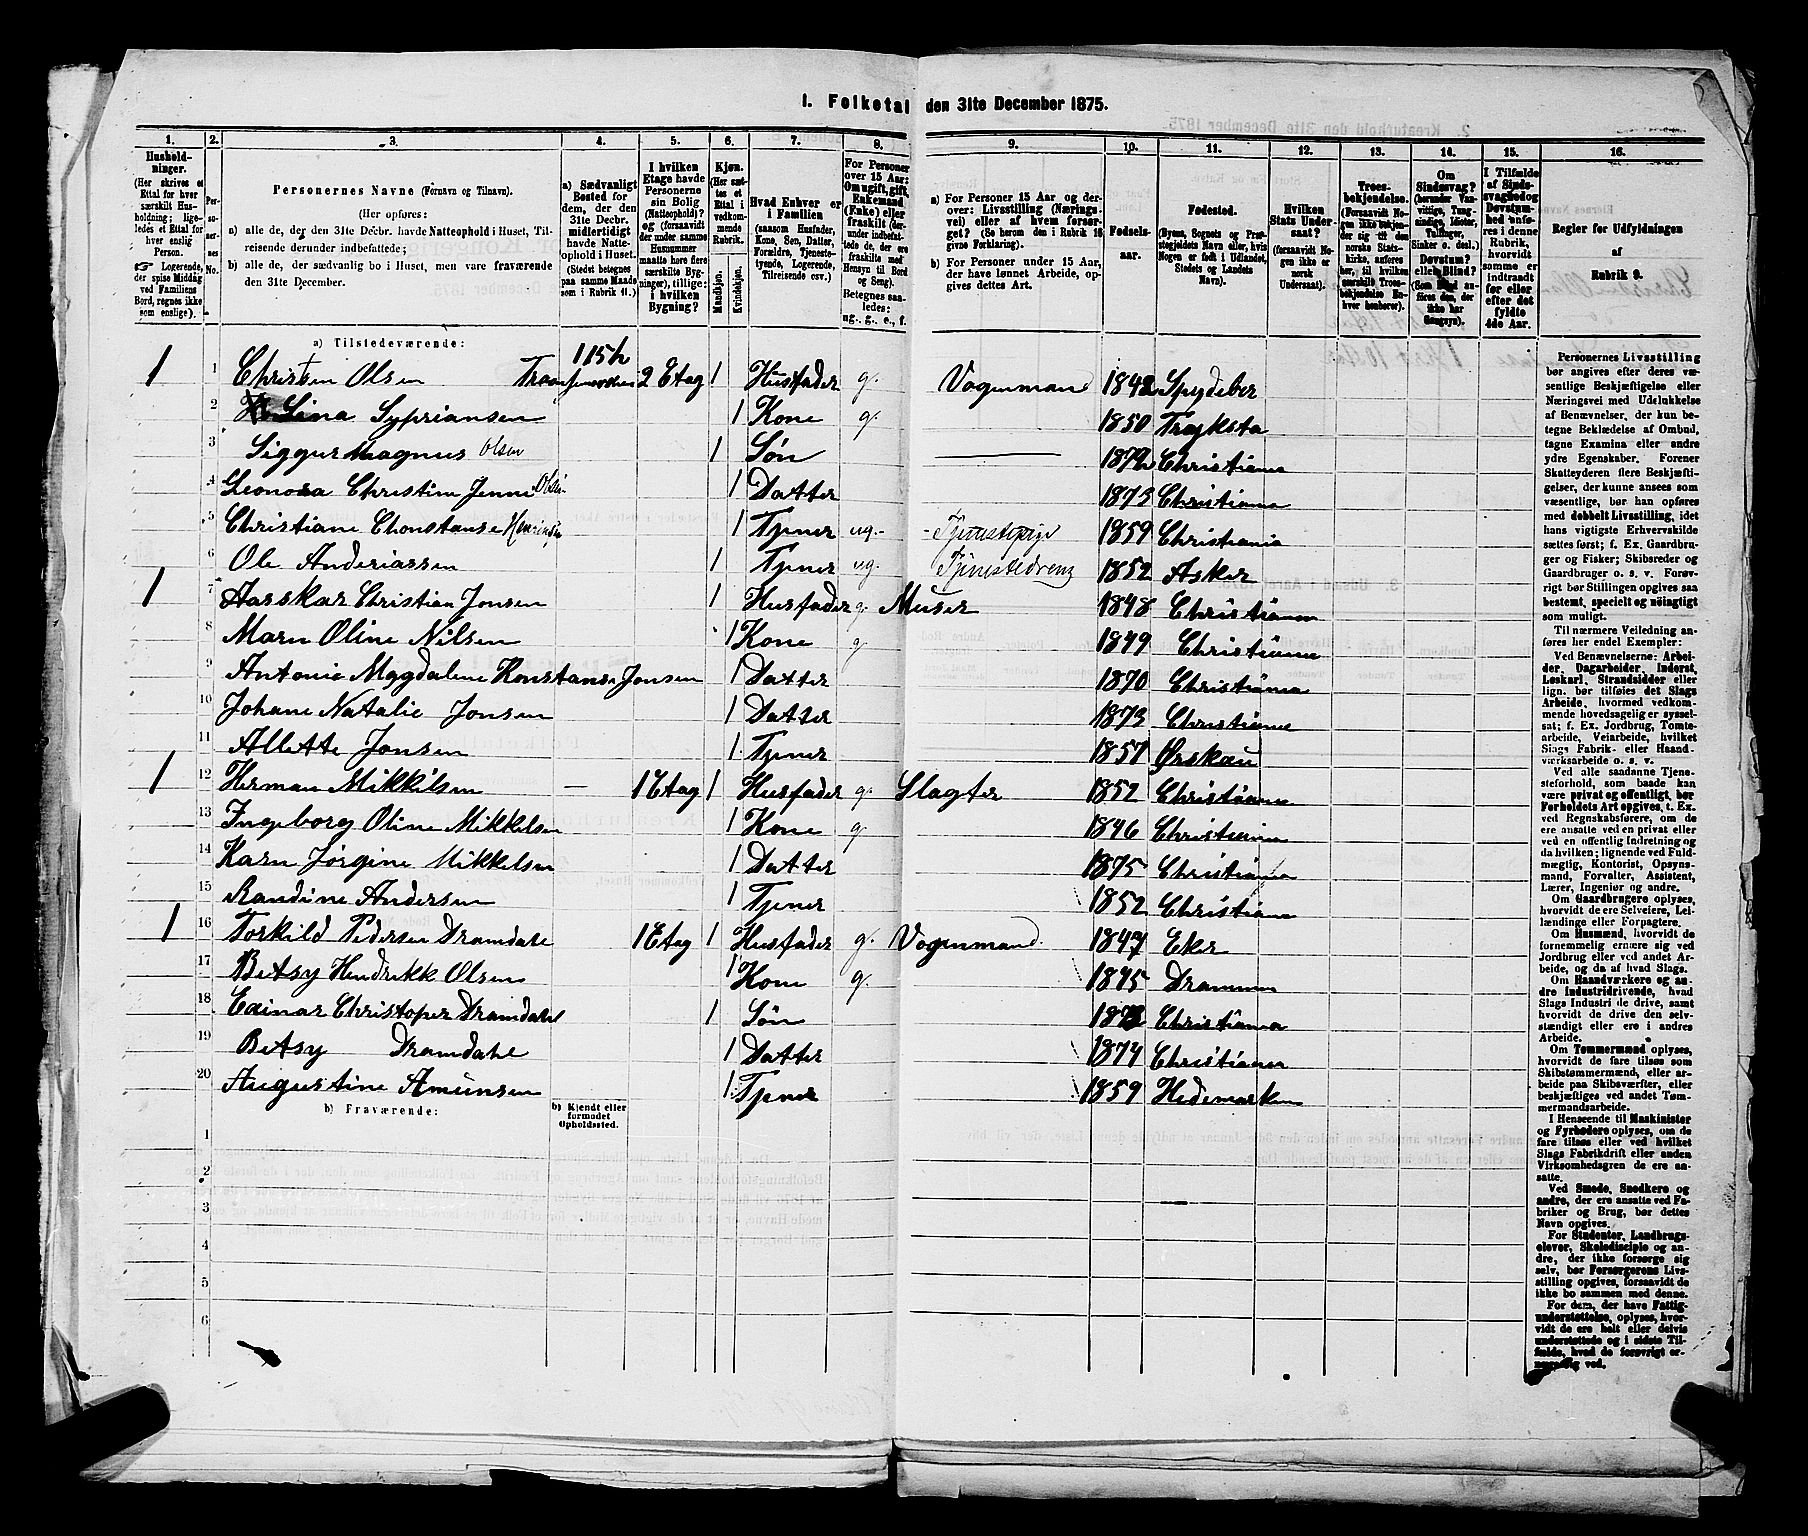 1. Folketal den 31te December 1875.
1. 2. 3. 4. 5. 6. 7. 8. 9. 10. 11. 12. 13. 14. 15. 16.
Husholdninger.
(Her skrives et Ettal for hver særskilt Husholdning; ligeledes et Ettal for hver enslig Person.
☞ Logerende, der spise Middag ved Familiens Bord, regnes ikke som enslige).
Personernes No.
Personernes Navne (Fornavn og Tilnavn).
(Her opføres:
a) alle de, der den 31te Decbr. havde Natteophold i Huset, Tilreisende derunder indbefattede;
b) alle de, der sædvanlig bo i Huset, men vare fraværende den 31te December.
a) Sædvanligt Bosted for dem, der den 31te Decbr. midlertidigt havde Natteophold i Huset.
(Stedet betegnes paa samme Maade som i Rubrik 11.)
I hvilken Etage havde Personerne sin Bolig (Natteophold)? og (forsaavidt der under samme Husnummer maatte høre flere særskilte Bygninger), tillige: i hvilken Bygning?
Kjøn. (Her sættes et Ettal i vedkommende Rubrik.
Mandkjøn. Kvindekjøn.
Hvad Enhver er i Familien
(saasom Husfader, Kone, Søn, Datter, Forældre, Tjenestetyende, Logerende, Tilreisende osv.)
For Personer over 15 Aar: Om ugift, gift, Enkemand (Enke) eller fraskilt
Betegnes saaledes: ug., g., e., f.
a) For Personer 15 Aar og derover: Livsstilling (Næringsvei) eller af hvem forsørget? (Se herom den i Rubrik 16 givne Forklaring).
b) For Personer under 15 Aar, der have lønnet Arbeide, opgives dettes Art.
Fødselsaar.
Fødested.
(Byens, Sognets og Præstegjeldets Navn eller, hvis Nogen er født i Udlandet, Stedets og Landets Navn).
Hvilken Stats Undersaat?
(forsaavidt Nogen ikke er norsk Undersaat).
Troesbekjendelse.
(Forsaavidt Nogen ikke bekjender sig til den norske Statskirke, anføres her, til hvilken særskilt Troesbekjendelse Enhver henhører).
Om Sindssvag? Døvstum? eller Blind?
I Tilfælde af Sindssvaghed og Døvstumhed anføres i denne Rubrik, hvorvidt samme er indtraadt før eller efter det fyldte 4de Aar.
Regler for Udfyldningen af Rubrik 9.
a) Tilstedeværende:
1 1 Christen Olsen 115h 2 Etag 1 Husfader g. Vogenmand 1842 Spydeber
2 Lina Sypriansen 1 Kone g. 1850 Trøksta
3 Siggur Magnus Olsen 1 Søn 1872 Christiania
4 Leonora Christine Jenni Olsen 1 Datter 1873 Christiania
5 Christiane Chonstanse Henriksen 1 Tjener ug. Tjenestepige 1859 Christiania
6 Ole Anderiassen 1 Tjener ug. Tjenestedreng 1852 Asker
1 7 Aarskar Christian Jonsen 1 Husfader g. Muser 1848 Christiania
8 Marn Oline Nilsen 1 Kone g 1849 Christiania
9 Antonie Magdalene Konstanse Jonsen 1 Datter 1870 Christiania
10 Johane Natalie Jonsen 1 Datter 1873 Christiania
11 Allette Jonsen 1 Tjener 1857 Ørskau
1 12 Herman Mikkilsen — 1 Etag 1 Husfader g. Slagter 1852 Christiania
13 Ingeborg Oline Mikkelsen 1 Kone g. 1846 Christiania
14 Karn Jørgine Mikkelsen 1 Datter 1875 Christiania
15 Randine Andersen 1 Tjener 1852 Christiania
1 16 Torkild Pedersen Dramdale 1 Etag 1 Husfader g. Vogenmand. 1847 Eker
17 Betsy Hendrikk Olsen 1 Kone g. 1845 Drammen
18 Eainar Christoper Dramdale 1 Søn Christiania
19 Betsy Dramdale 1 Datter 1874 Christiania
20 Augustine Amunsen 1 Tjener 1859 Hedemarken
b) Fraværende:
b) Kjendt eller formodet Opholdssted.
1
2
3
4
5
6
Personernes Livsstilling bør angives efter deres væsentlige Beskjæftigelse eller Næringsvei med Udelukkelse af Benævnelser, der kun betegne Beklædelse af Ombud, tagne Examina eller andre ydre Egenskaber. Forener Skatteyderen flere Beskjæftigelser, der kunne ansees som væsentlige, bør han opføres med dobbelt Livsstilling, idet hans vigtigste Erhvervskilde sættes først; f. Ex. Gaardbruger og Fisker; Skibsreder og Gaardbruger o. s. v. Forøvrigt bør Stillingen opgives saa bestemt, specielt og nöiagtigt som muligt.
Til nærmere Veiledning anføres her endel Exempler:
Ved Benævnelserne: Arbeider, Dagarbeider, Inderst, Løskarl, Strandsidder eller lign. bør tilføies det Slags Arbeide, hvormed vedkommende hovedsagelig er sysselsat; f. Ex. Jordbrug, Tomtearbeide, Veiarbeide, hvilket Slags Fabrik- eller Haandværksarbeide o. s. v.
Ved alle saadanne Tjenesteforhold, som baade kan være privat og offentligt, bør Forholdets Art opgives, t. Ex. ved Regnskabsførere, om de ere ansatte ved en privat eller ved en offentlig Indretning og da hvilken; lignende ved Fuldmægtig, Kontorist, Opsynsmand, Forvalter, Assistent, Lærer, Ingeniør og andre.
Om Gaardbrugere oplyses, hvorvidt de ere Selveiere, Leilændinge eller Forpagtere.
Om Husmænd, hvorvidt de fornemmelig ernære sig ved Jordbrug eller ved andet Arbeide, og da af hvad Slags.
Om Haandværkere og andre Industridrivende, hvad Slags Industri de drive, samt hvorvidt de drive den selvstændigt eller ere i andres Arbeide.
Om Tømmermænd oplyses, hvorvidt de fare tilsøs som Skibstømmermænd, eller arbeide paa Skibsværfter, eller beskjæftiges ved andet Tømmermandsarbeide.
I Henseende til Maskinister og Fyrbødere oplyses, om de fare tilsøs eller ved hvilket Slags Fabrikdrift eller anden Virksomhedsgren de ere ansatte.
Ved Smede, Snedkere og andre, der ere ansatte ved Fabriker og Brug, bør dettes Navn opgives.
For Studenter, Landbrugselever, Skoledisciple og andre, der ikke forsørge sig selv, bør Forsørgerens Livsstilling opgives, forsaavidt de ikke bo sammen med denne.
For dem, der have Fattigunderstøttelse, oplyses, hvorvidt de ere helt eller delvis understøttede og i sidste Tilfælde, hvad de forøvrigt ernære sig ved.